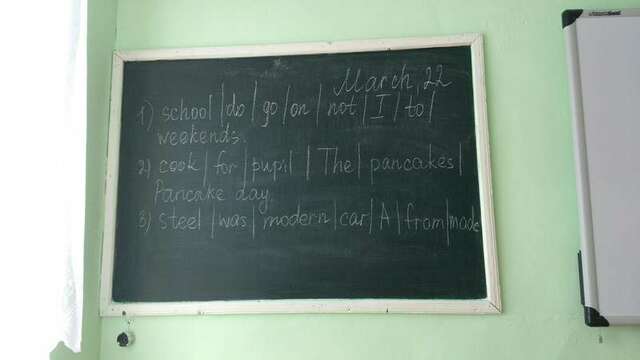 March, 22
1) school | do | go | on | not | I | to |
weekends.
2) cook | for | pupil | The | pancakes |
Pancake day.
3) Steel | was | modern | car | A | from | made